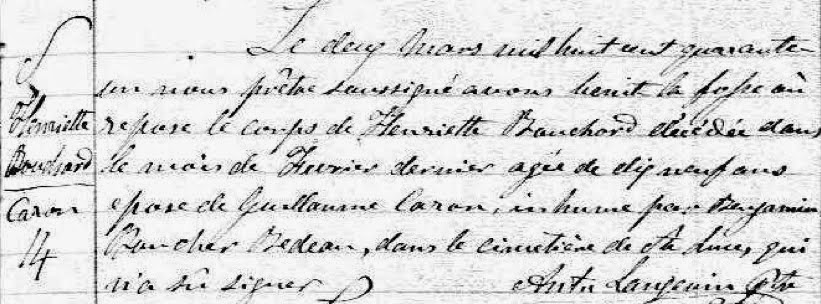 S
Henriette
Bouchard
Caron
14
Le deux Mars mil huit cent quarante
un nous prêtre soussigné avons benit la fosse où
repose le corps de Henriette Bouchard décédée dans
le mois de Fevrier dernier agée de dix neuf ans
epose de Guillaume Caron, inhumé par Benjamin
Boucher Bedeau, dans le cimetière de Ste Luce, qui
n'a su signer
Antn Langevin Ptre